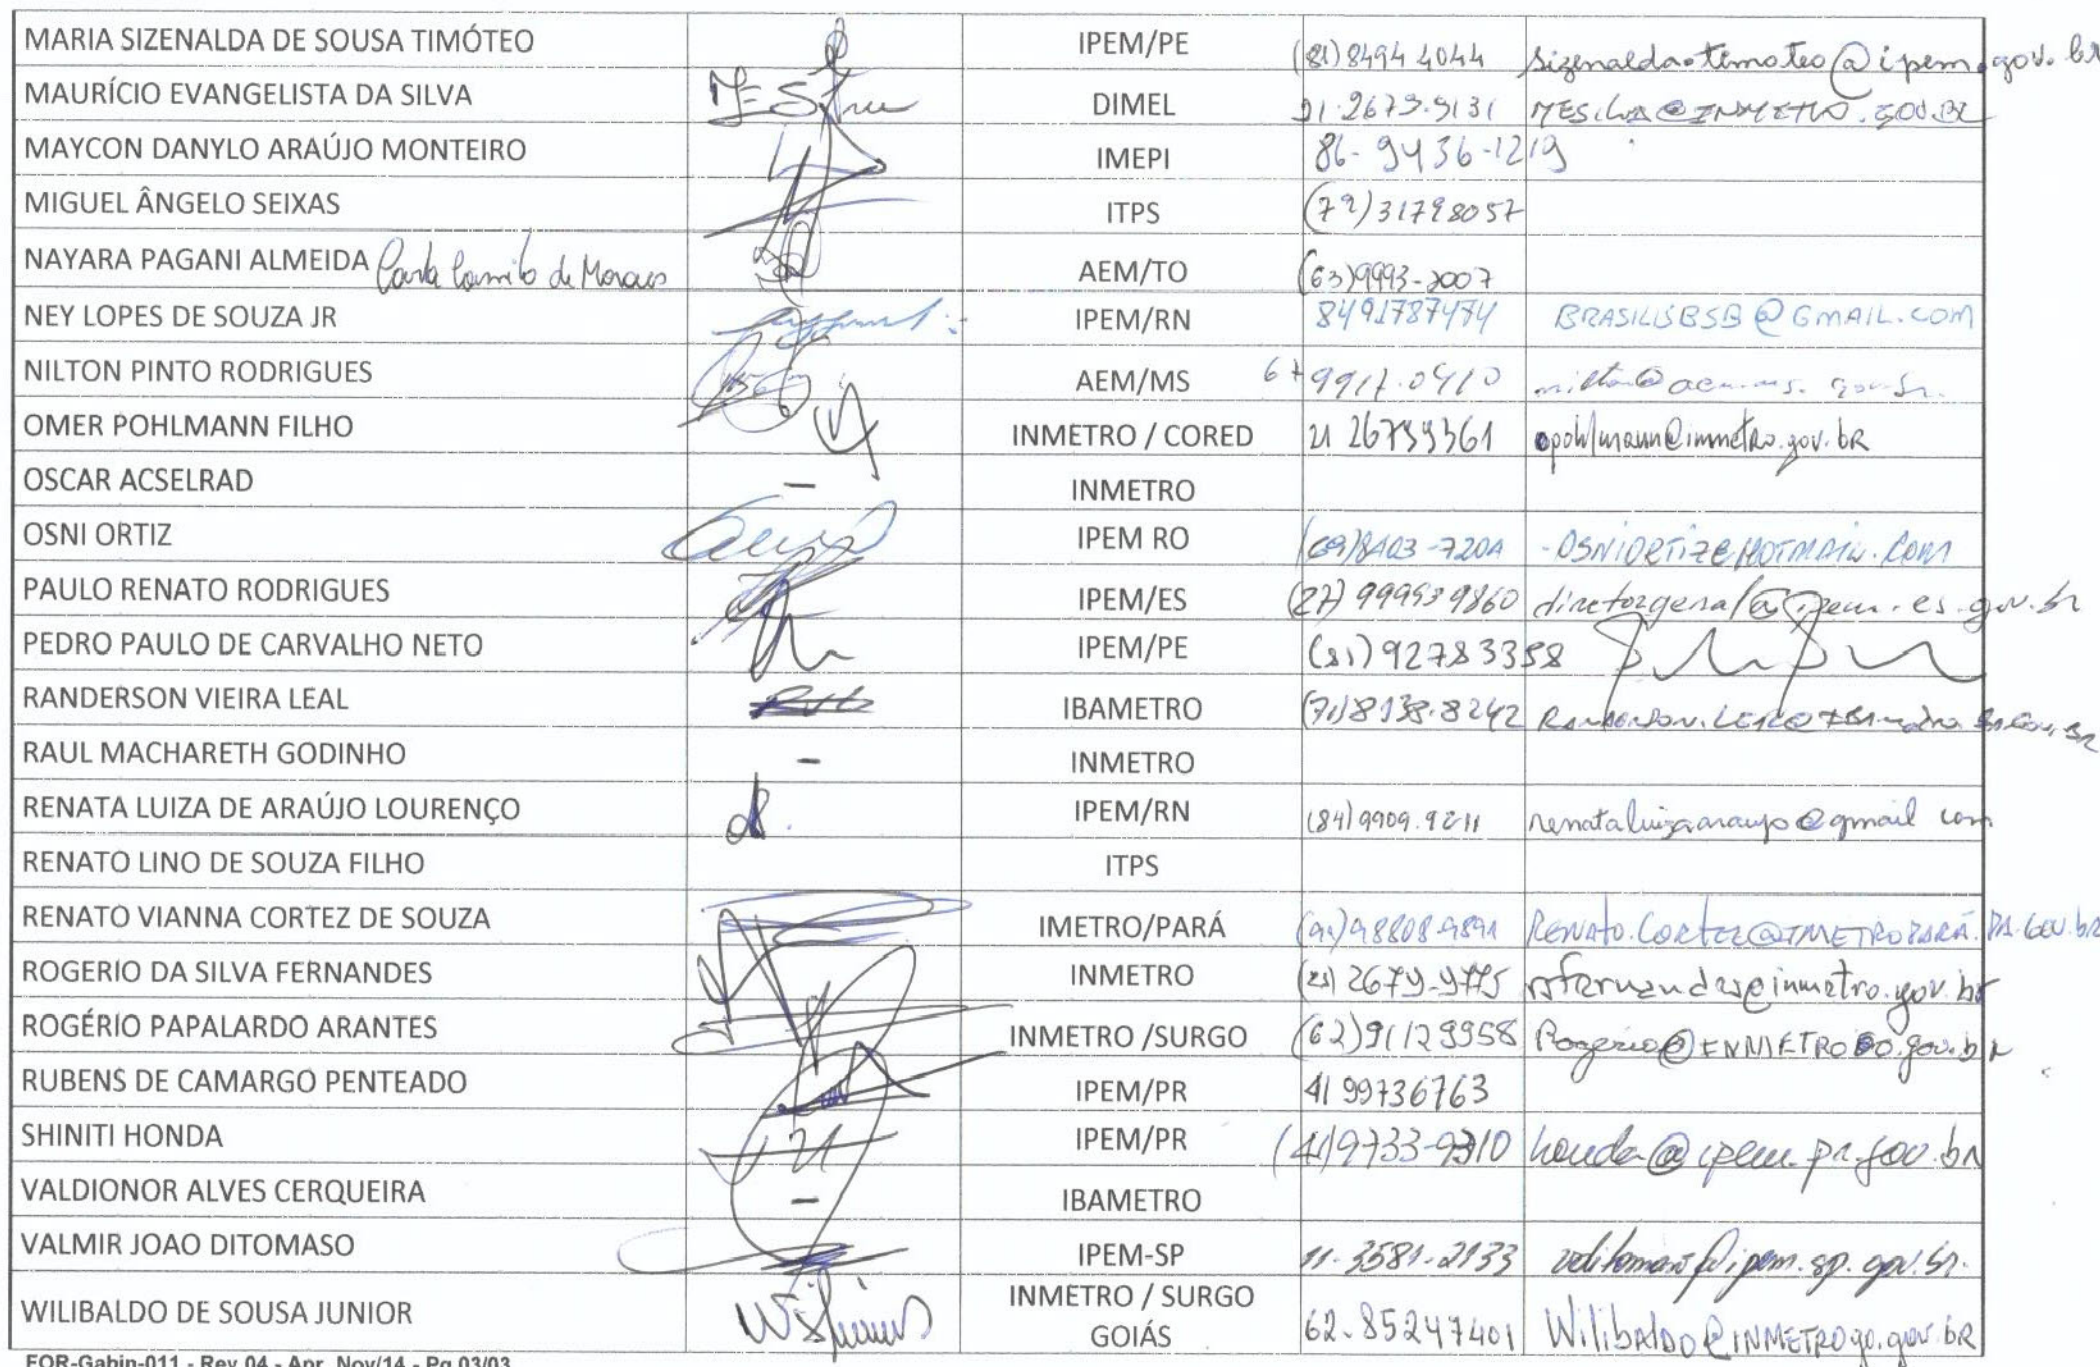 MARIA SIZENALDA DE SOUSA TIMÓTEO IPEM/PE (81) 8494 4044 sizenalda.timoteo@ipem.gov.br
MAURÍCIO EVANGELISTA DA SILVA DIMEL 21.2679.9131 MESilva@INMETRO.GOV.BR
MAYCON DANYLO ARAÚJO MONTEIRO IMEPI 86-9436-1219
MIGUEL ÂNGELO SEIXAS ITPS (79)31798057
NAYARA PAGANI ALMEIDA Carla Camilo de Moraes AEM/TO (63)9993-2007
NEY LOPES DE SOUZA JR IPEM/RN 8491787474 BRASILISBSB@GMAIL.COM
NILTON PINTO RODRIGUES AEM/MS 67 9917.0410
OMER POHLMANN FILHO INMETRO / CORED 21 26799361 opohlmann@inmetro.gov.bR
OSCAR ACSELRAD — INMETRO
OSNI ORTIZ IPEM RO (69)8403-7201 -OSNIORTIZ@HOTMAIL.COM
PAULO RENATO RODRIGUES IPEM/ES (27) 999939860 diretorgeral@ipem.es.gov.br
PEDRO PAULO DE CARVALHO NETO IPEM/PE (81) 92783358
RANDERSON VIEIRA LEAL IBAMETRO (71)8138.8242
RAUL MACHARETH GODINHO - INMETRO
RENATA LUIZA DE ARAÚJO LOURENÇO IPEM/RN (84) 9909.9211 renataluizaaraujo@gmail com
RENATO LINO DE SOUZA FILHO ITPS
RENATO VIANNA CORTEZ DE SOUZA IMETRO/PARÁ (91)98808-9891 RENATO.CORTEZ@IMETROPARÁ.PA.GOV.bR
ROGERIO DA SILVA FERNANDES INMETRO (21) 2679-9775 rsfernandes@inmetro.gov.br
ROGÉRIO PAPALARDO ARANTES INMETRO /SURGO (62)91129958
RUBENS DE CAMARGO PENTEADO IPEM/PR 41 99736763
SHINITI HONDA IPEM/PR (41)9733-9310 honda@ipem.pr.gov.br
VALDIONOR ALVES CERQUEIRA — IBAMETRO
VALMIR JOAO DITOMASO IPEM-SP 11-3581-2133 vditomaso@ipem.sp.gov.br.
WILIBALDO DE SOUSA JUNIOR INMETRO / SURGO
GOIÁS 62-85247401 WilibALDO@INMETROgo.gov.bR
FOR-Gabin-011 - Rev.04 - Apr. Nov/14 - Pg 03/03